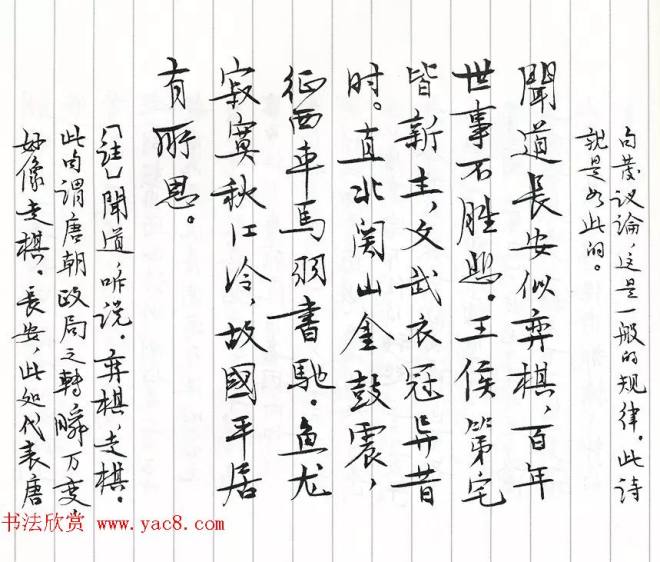 句發议论，这是一般的规律。此诗
就是如此的。
聞道長安似弈棋，百年
世事不胜悲。王侯第宅
皆新主，文武衣冠异昔
时。直北関山金鼓震，
征西車馬羽書馳。鱼龙
寂寞秋江冷，故國平居
有所思。
〔註〕聞道，听说。弈棋，走棋。
此句謂唐朝政局之轉瞬万变，
好像走棋。長安，此处代表唐
书法欣赏 www.yac8.com